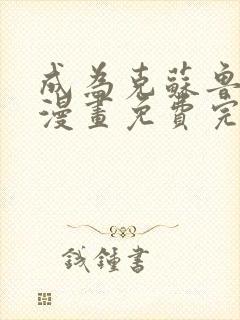 成為克蘇魯
漫畫免費完
錢鍾書